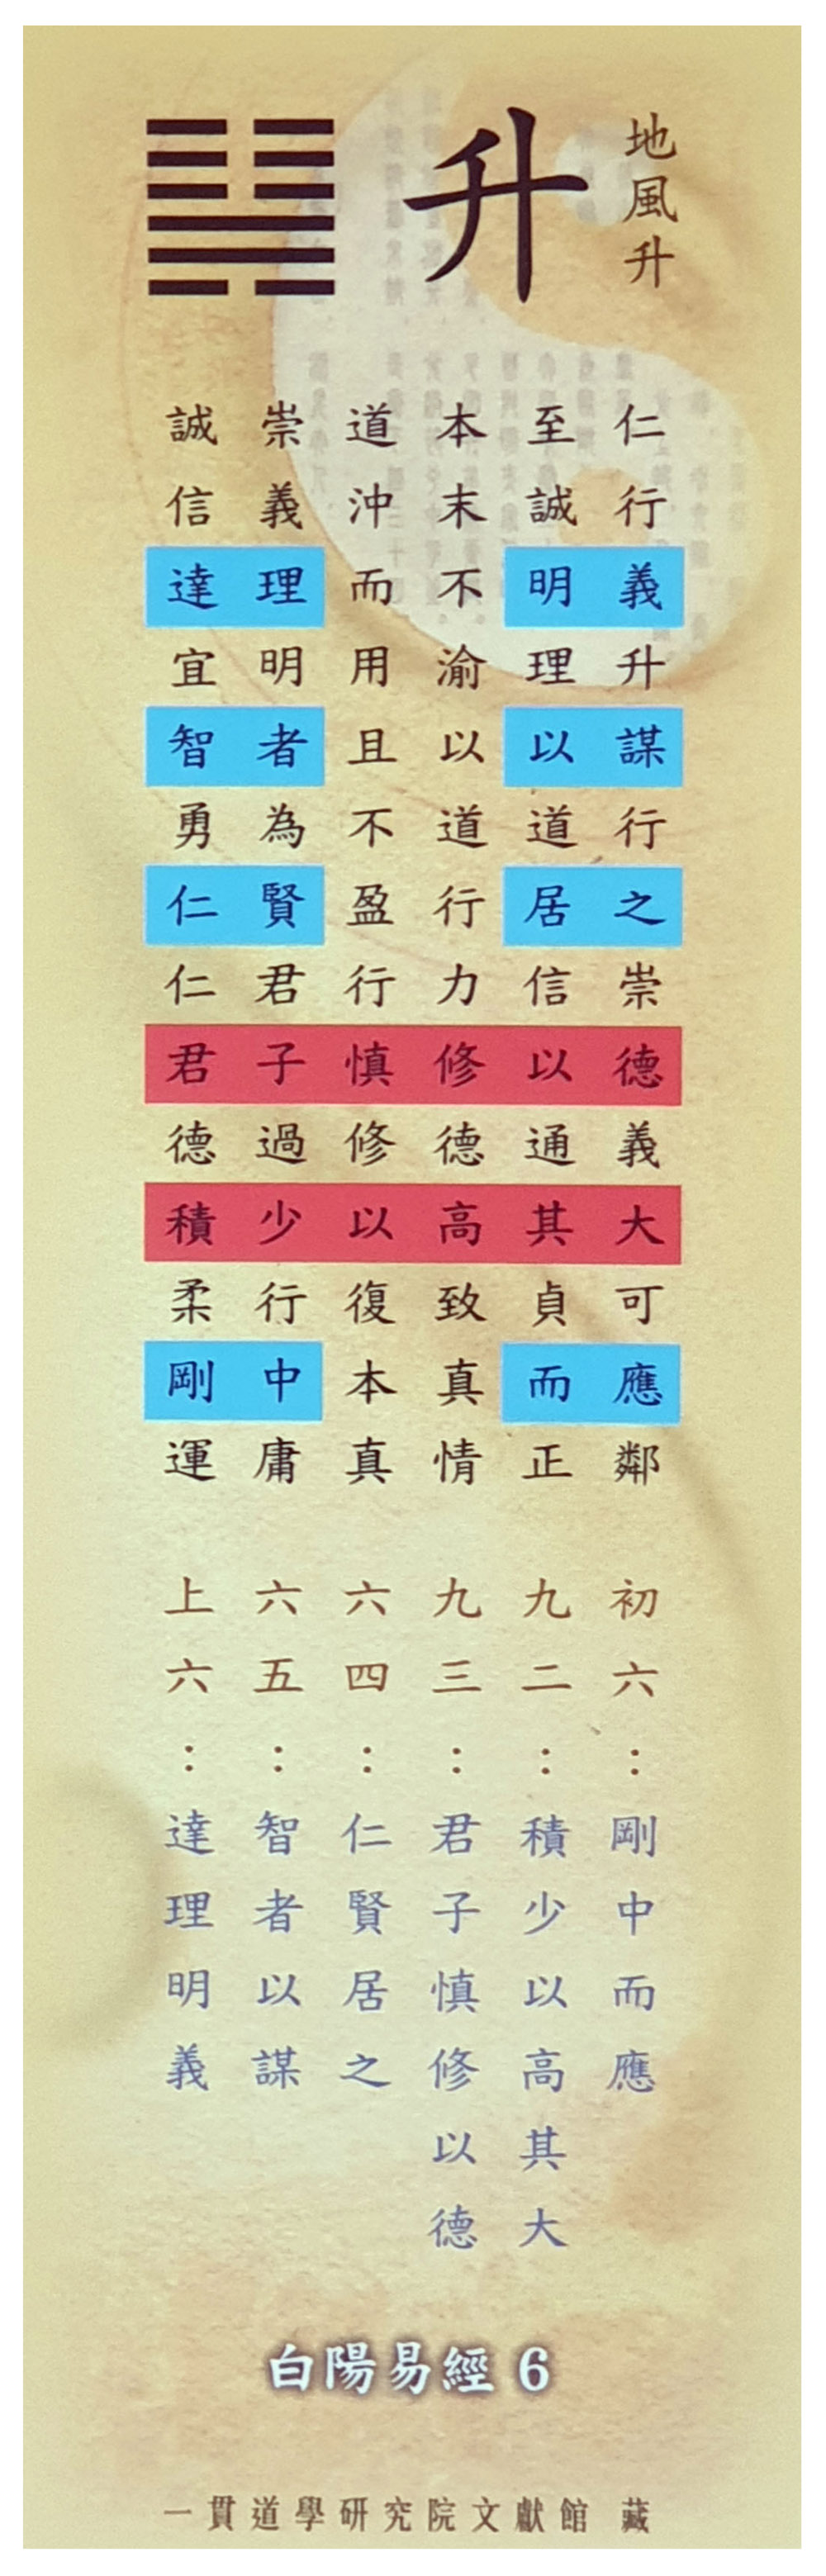 地風升
升
仁行義升謀行之崇德義大可應鄰
至誠明理以道居信以通其貞而正
本末不渝以道行力修德高致真情
道沖而用且不盈行慎修以復本真
崇義理明者為賢君子過少行中庸
誠信達宜智勇仁仁君德積柔剛運
初六：剛中而應
九二：積少以高其大
九三：君子慎修以德
六四：仁賢居之
六五：智者以謀
上六：達理明義
白陽易經 6
一貫道學研究院文獻館 藏